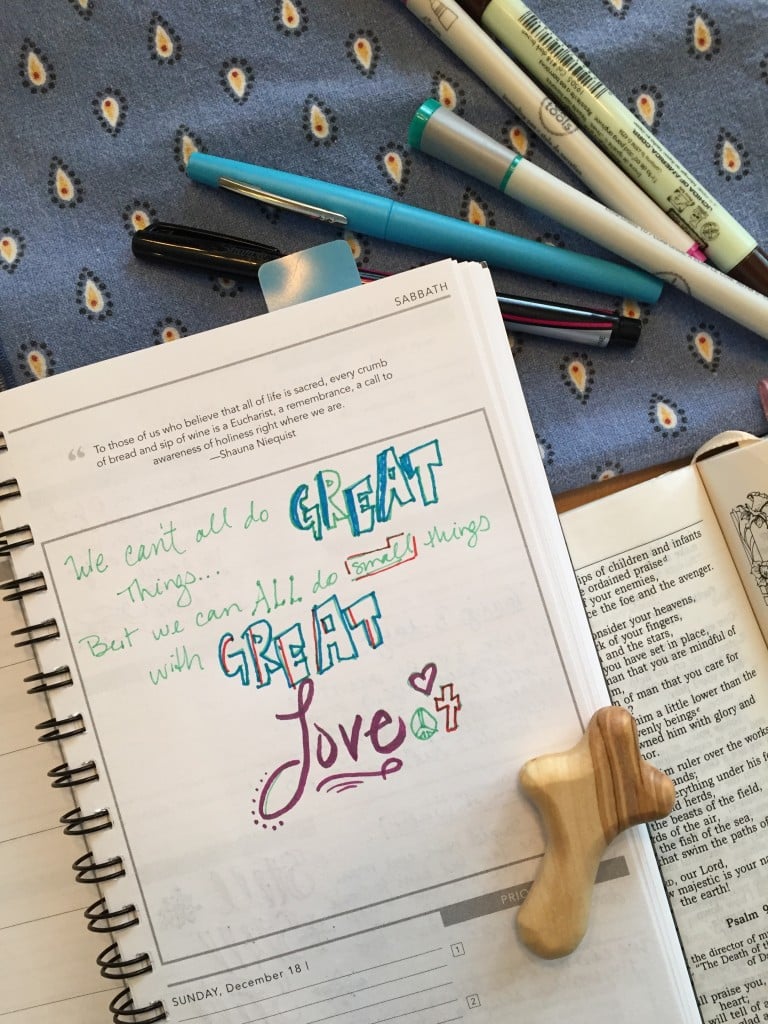 SABBATH
“ To those of us who believe that all of life is sacred, every crumb
of bread and sip of wine is a Eucharist, a remembrance, a call to
awareness of holiness right where we are.
—Shauna Niequist
We can't all do GREAT
Things...
But we can ALL do small things
with GREAT
Love
SUNDAY, December 18 |
PRIO
1
2
tools
of children and infants
ordained praise
your enemies,
the foe and the avenger.
your heavens,
of your fingers,
and the stars,
you have set in place,
that you are mindful of
of man that you care for
him a little lower than the
beings
him with glory and
ruler over the works
everything under his
herds,
the beasts of the field,
of the air,
the fish of the sea,
that swim the paths of
our Lord,
majestic is your
the earth!
Psalm 9
the director of
"The Death of
of
praise you,
heart;
will tell of